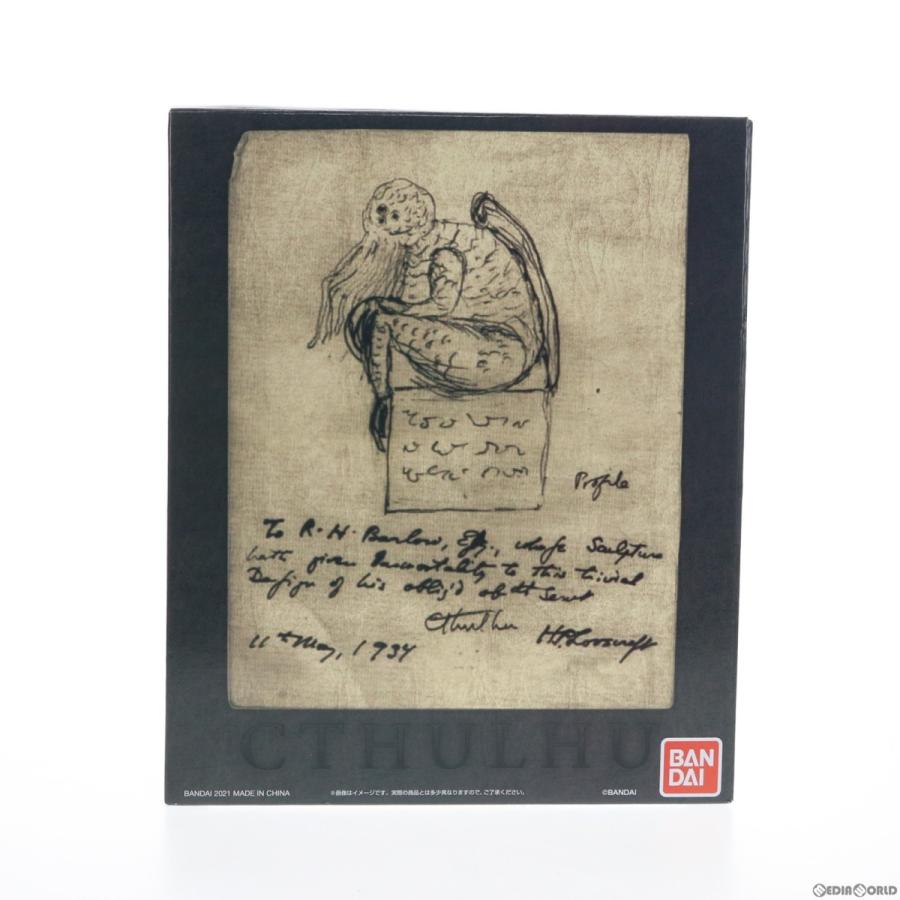 Profile
To R. H. Barlow, Esq., whose Sculpture
hath given Immortality to this trivial
Design of his oblig'd obdt Servt
Cthulhu
H.P. Lovecraft
11th May, 1934
CTHULHU
BAN
DAI
BANDAI 2021 MADE IN CHINA
※画像はイメージです。実際の商品とは多少異なりますので、ご了承ください。
©BANDAI
MEDIAWORLD